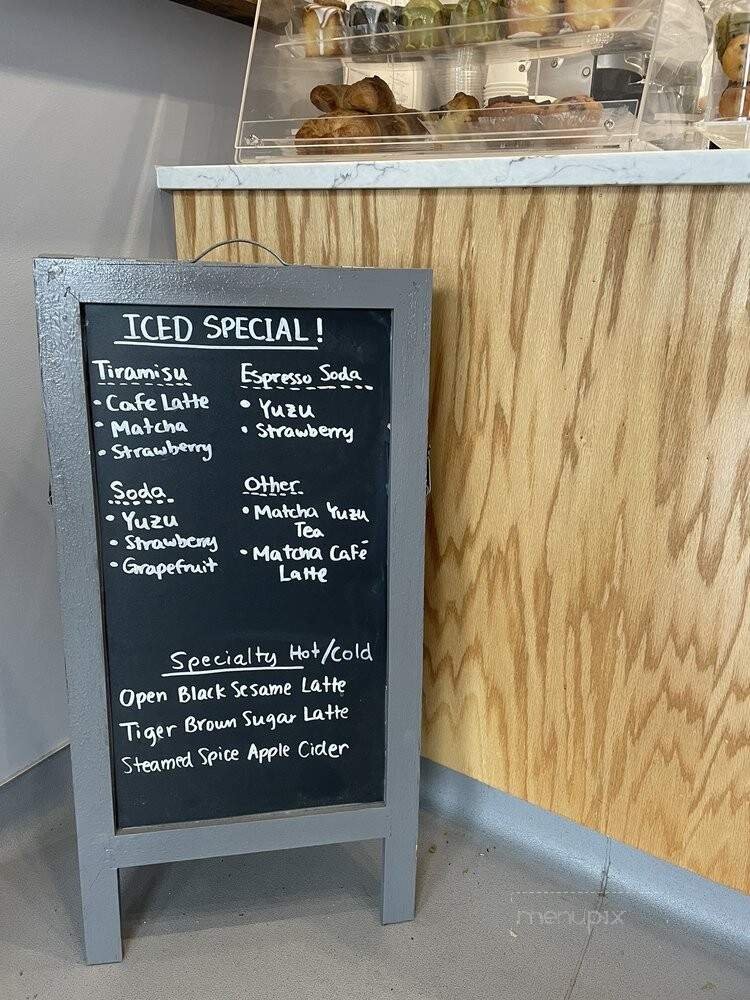 ICED SPECIAL!
Tiramisu
• Cafe Latte
• Matcha
• Strawberry
Espresso Soda
• Yuzu
• Strawberry
Soda
• Yuzu
• Strawberry
• Grapefruit
Other
• Matcha Yuzu
Tea
• Matcha Café
Latte
Specialty Hot/Cold
Open Black Sesame Latte
Tiger Brown Sugar Latte
Steamed Spice Apple Cider
menupix